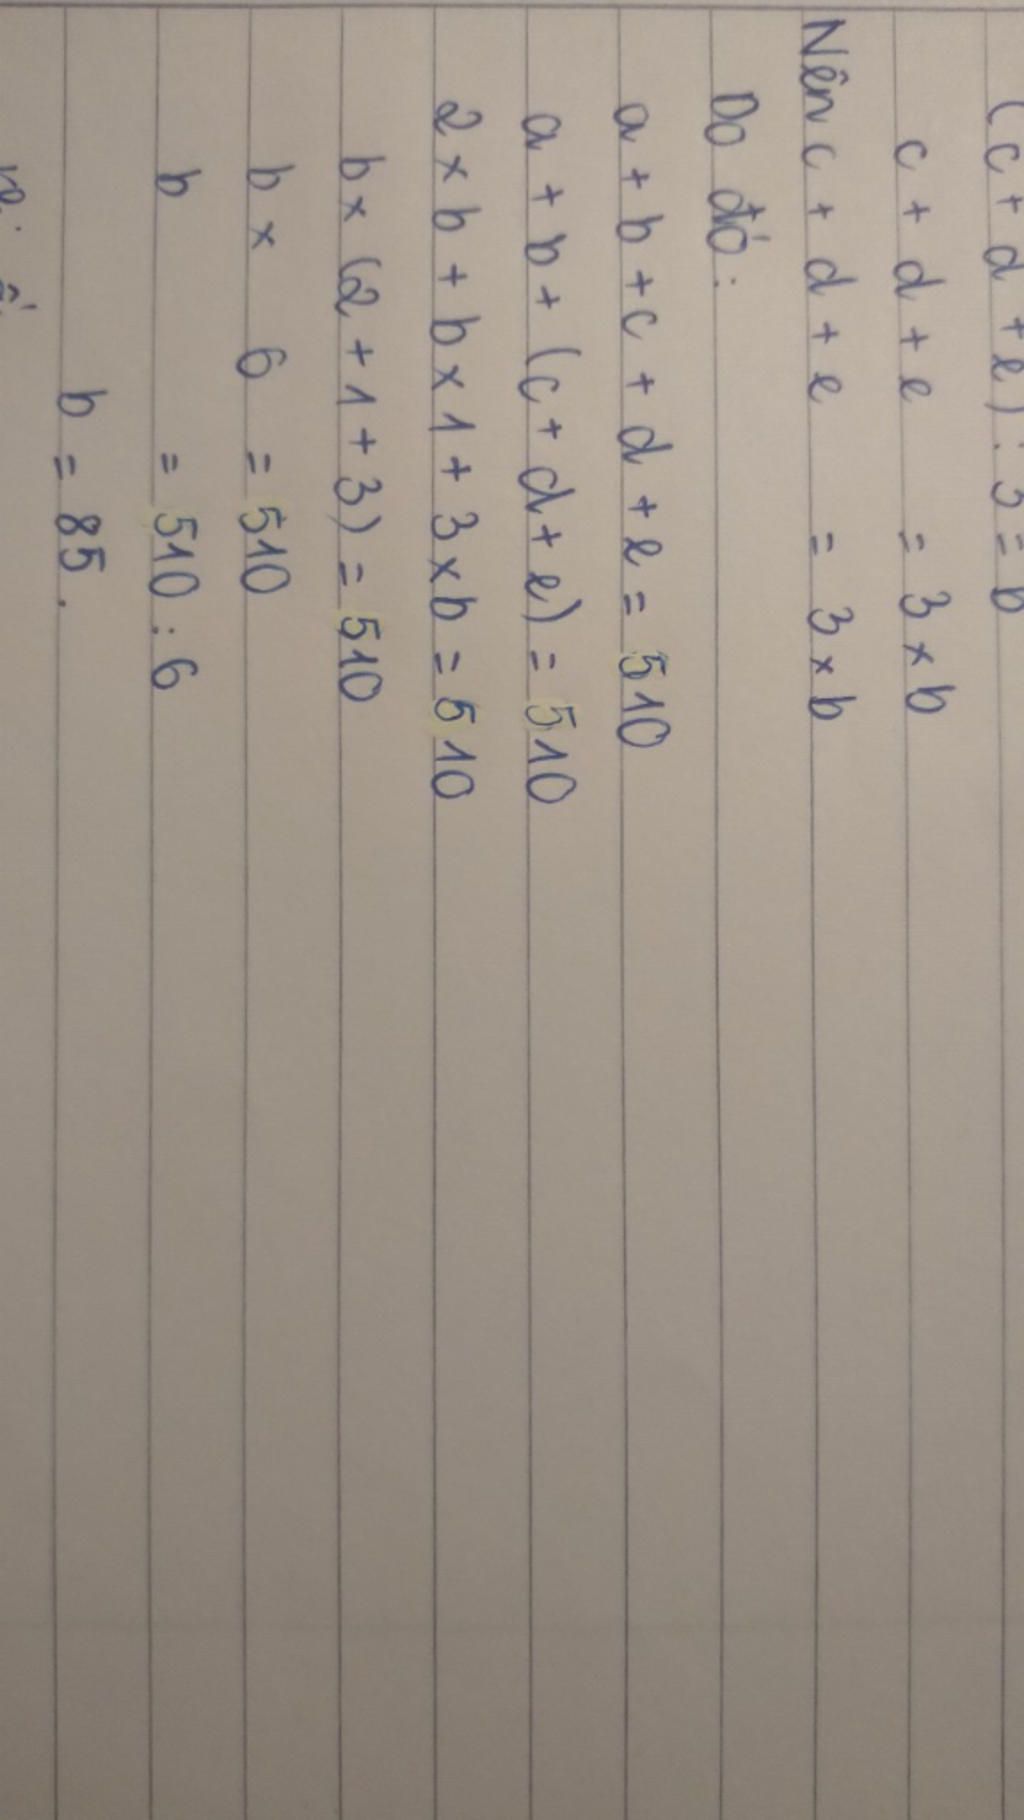 (c + d + e) : 3 = b
c + d + e = 3 × b
Nên c + d + e = 3 × b
Do đó:
a + b + c + d + e = 510
a + b + (c + d + e) = 510
2 × b + b × 1 + 3 × b = 510
b × (2 + 1 + 3) = 510
b × 6 = 510
b = 510 : 6
b = 85.